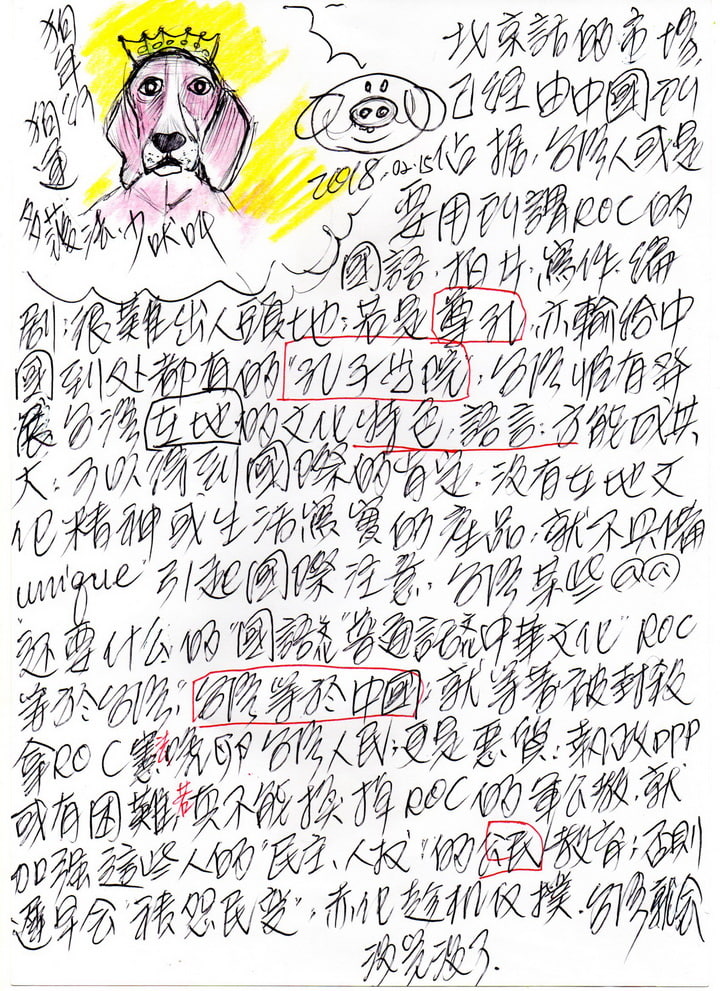 狗年
狗運
北京話的市場,
已經由中國到
2018.02.15 佔據,台灣人或是
要用到謂ROC的
國語,拍片,寫作,編
劇;很難出人頭地;若是尊孔,亦輸給中
國到处都有的"孔子学院";台灣唯有發
展台灣在地的文化特色,語言;方能成其
大;可以得到國際的肯定,沒有在地文
化精神或生活寫實的產品,就不具備
unique" 引起國際注意;台灣某些@@
还尊什么的"國語"普通話"中華文化"ROC
等於台灣;"台灣等於中國";就等著被封殺
拿ROC憲法 台灣人民;更是惡質;執政DPP
或有困難,若真不能換掉ROC的軍公教,就
加強這些人的"民主,人权"的公民教育;否則
遲早会"積怨民变";赤化趁机反撲.台灣就会
没完没了.